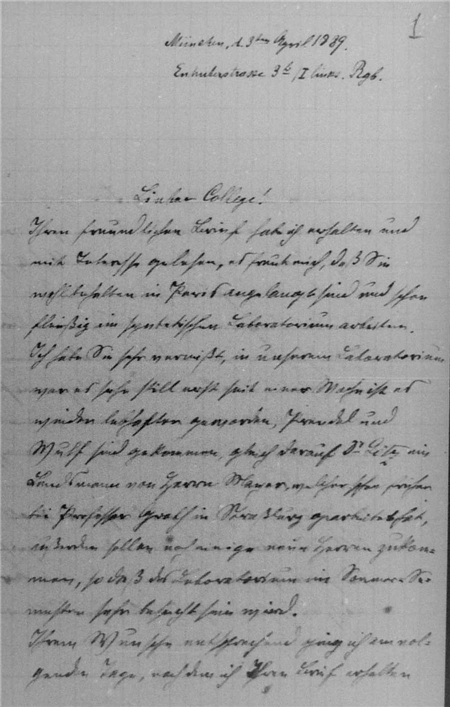 1
München, d. 3ten April 1889.
Enhuberstrasse 3b, I links. Rgb.
Lieber College!
Ihren freundlichen Brief habe ich erhalten und
mit Interesse gelesen, es freut mich, daß Sie
wohlbehalten in Paris angelangt sind und schon
fleißig im synthetischen Laboratorium arbeiten.
Ich habe Sie sehr vermißt, in unserem Laboratorium
war es sehr still erst seit einer Woche ist es
wieder lebhafter geworden, Prendel und
Wulff sind gekommen, gleich darauf Dr ein
Landsmann von Herrn welcher schon früher
bei Professor Groth in Straßburg gearbeitet hat,
außerdem sollen noch einige neue Herren zukom-
men, so daß das Laboratorium im Sommer Se-
mester sehr besucht sein wird.
Ihrem Wunsche entsprechend ging ich am vol-
genden Tage, nach dem ich Ihren Brief erhalten